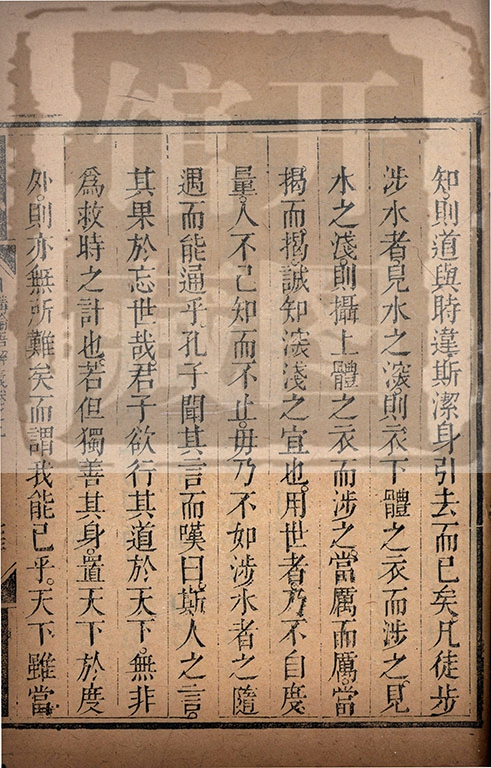 知則道與時違斯潔身引去而已矣凡徒步
涉水者見水之深則衣下體之衣而涉之見
水之淺則攝上體之衣而涉之當厲而厲當
揭而揭誠知深淺之宜也用世者乃不自度
量人不己知而不止毋乃不如涉水者之隨
遇而能通乎孔子聞其言而嘆曰斯人之言
其果於忘世哉君子欲行其道於天下無非
爲救時之計也若但獨善其身置天下於度
外則亦無所難矣而謂我能已乎天下雖當